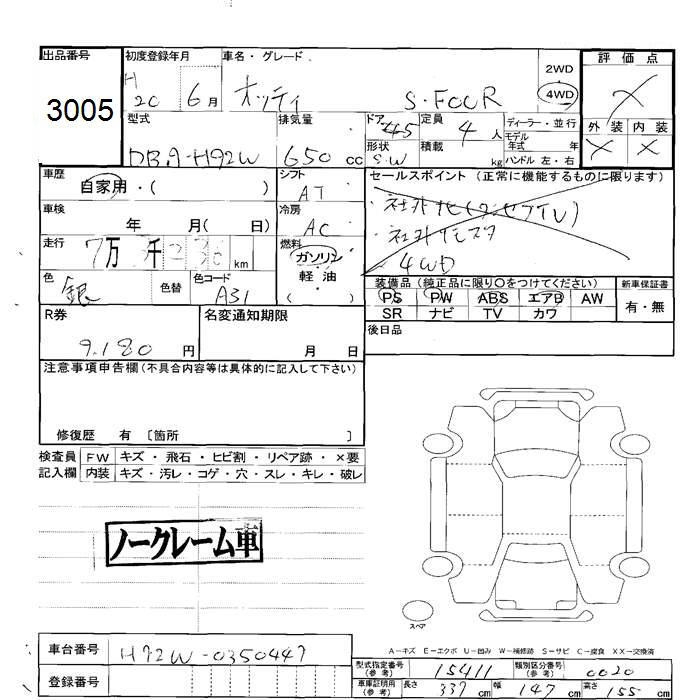 出品番号 初度登録年月 車名・グレード 評価点
3005 H 20 6月 オッティ S・FOUR 2WD 4WD
型式 排気量 ドア 定員 ディーラー・並行 外装 内装
DBA-H92W 650 cc 45 4人 モデル年式 年
形状 S.W 積載 kg ハンドル 左・右
車歴 シフト セールスポイント (正常に機能するものに限ります)
自家用・( ) AT
車検 年 月( 日) 冷房 AC
走行 7万 千 km 燃料 ガソリン
4WD
色 銀 色替 色コード A31 軽・油
装備品 (純正品に限り○をつけてください) 新車保証書
PS PW ABS エアB AW 有・無
SR ナビ TV カワ
R券 名変通知期限 後日品
9.180 円 月 日
注意事項申告欄(不具合内容等は具体的に記入して下さい)
修復歴 有 〔箇所 〕
検査員 FW キズ・飛石・ヒビ割・リペア跡・×要
記入欄 内装 キズ・汚レ・コゲ・穴・スレ・キレ・破レ
ノークレーム車
スペア
A－キズ E－エクボ U－凹み W－補修跡 S－サビ C－腐食 XX－交換済
車台番号 H92W-0350447
登録番号
型式指定番号(参考) 15411 類別区分番号(参考) 0020
車庫証明用(参考) 長さ 339 cm 幅 147 cm 高さ 155 cm